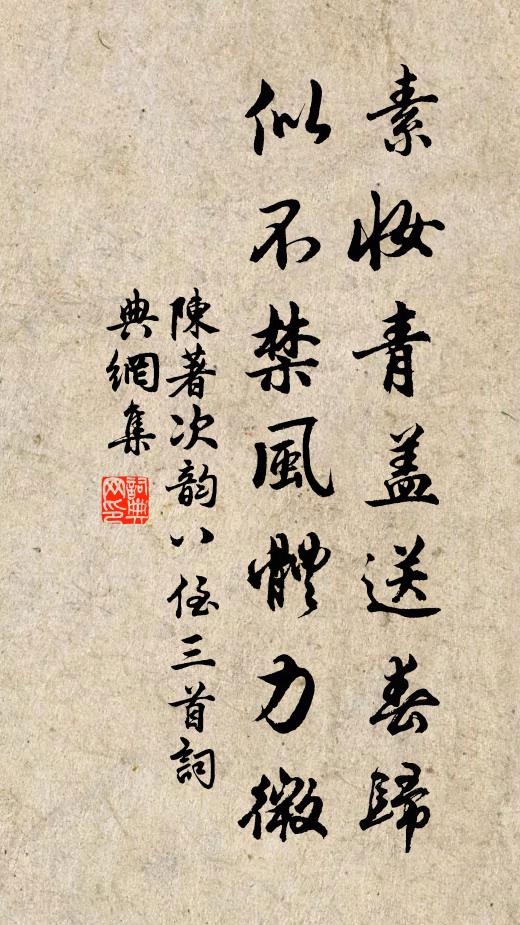 素妝青蓋送春歸
似不禁風體力微
陳著次韵八侄三首詞
典網集
詞典
网印